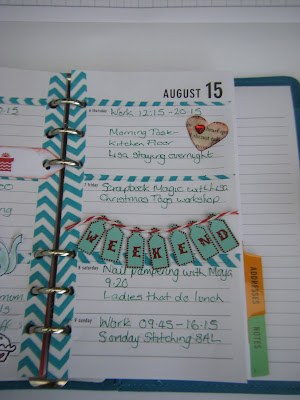 AUGUST 15
Work 12:15 - 20:15
Morning Task -
Kitchen Floor
Lisa Staying overnight
friday
Scrapbook Magic with Lisa
Christmas Tags workshop
WEEKEND
saturday
Nail pampering with Maya
9-20
Ladies that do lunch
sunday
Work 09:45 - 16:15
Sonday Stitching SAL
ADDRESSES
NOTES